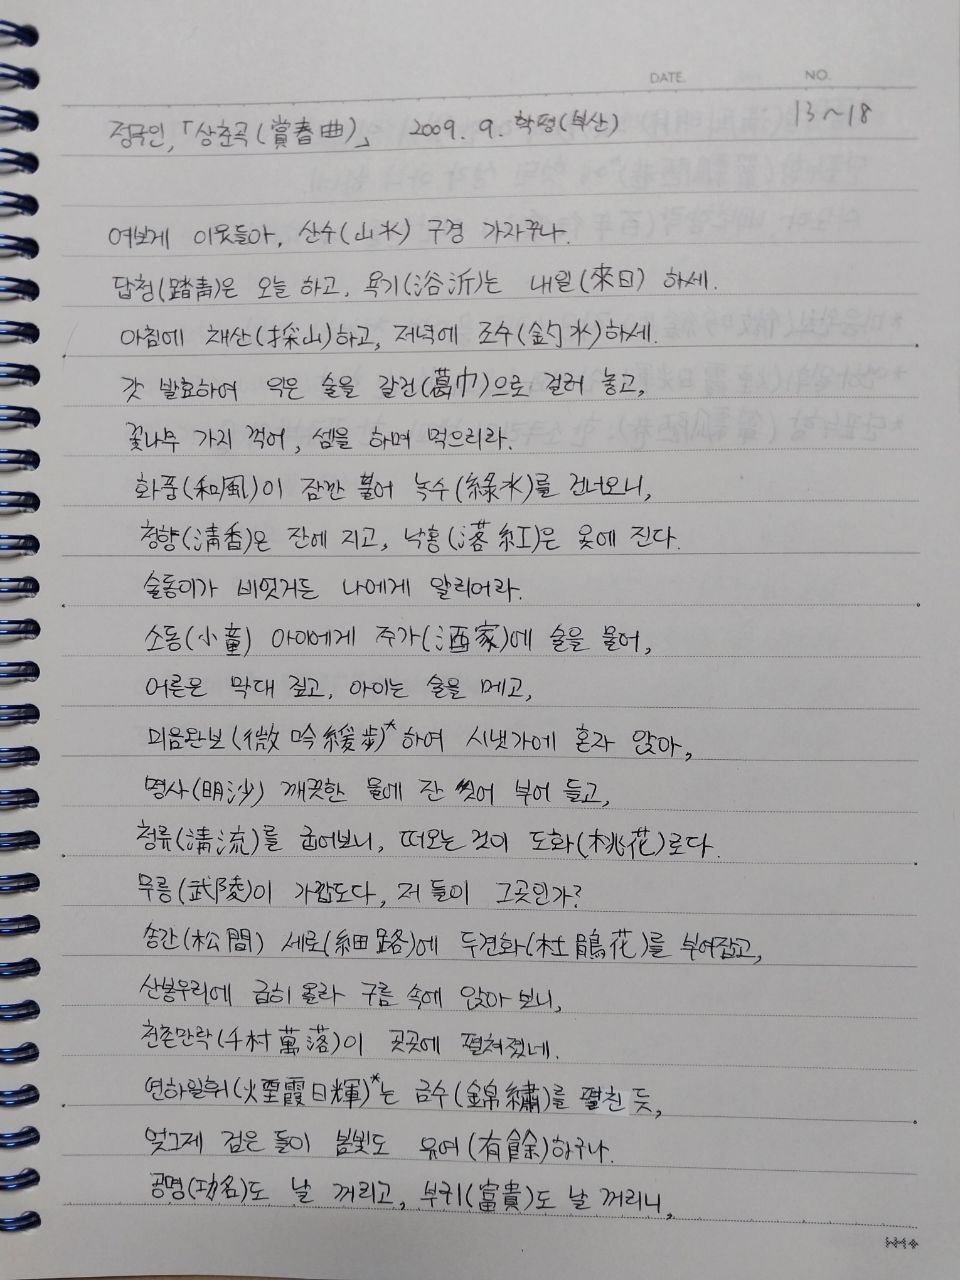 DATE. NO.
정극인, 「상춘곡(賞春曲)」 2009. 9. 학평(부산) 13~18
여보게 이웃들아, 산수(山水) 구경 가자꾸나.
답청(踏靑)은 오늘 하고, 욕기(浴沂)는 내일(來日) 하세.
아침에 채산(採山)하고, 저녁에 조수(釣水)하세.
갓 발효하여 익은 술을 갈건(葛巾)으로 걸러 놓고,
꽃나무 가지 꺽어, 셈을 하며 먹으리라.
화풍(和風)이 잠깐 불어 녹수(綠水)를 건너오니,
청향(淸香)은 잔에 지고, 낙홍(落紅)은 옷에 진다.
술동이가 비었거든 나에게 알리어라.
소동(小童) 아이에게 주가(酒家)에 술을 물어,
어른은 막대 짚고, 아이는 술을 메고,
미음완보(微吟緩步)*하여 시냇가에 혼자 앉아,
명사(明沙) 깨끗한 물에 잔 씻어 부어 들고,
청류(淸流)를 굽어보니, 떠오는 것이 도화(桃花)로다.
무릉(武陵)이 가깝도다, 저 들이 그곳인가?
송간(松間) 세로(細路)에 두견화(杜鵑花)를 부여잡고,
산봉우리에 급히 올라 구름 속에 앉아 보니,
천촌만락(千村萬落)이 곳곳에 펼쳐졌네.
연하일휘(煙霞日輝)*는 금수(錦繡)를 펼친 듯,
엊그제 검은 들이 봄빛도 유여(有餘)하구나.
공명(功名)도 날 꺼리고, 부귀(富貴)도 날 꺼리니,